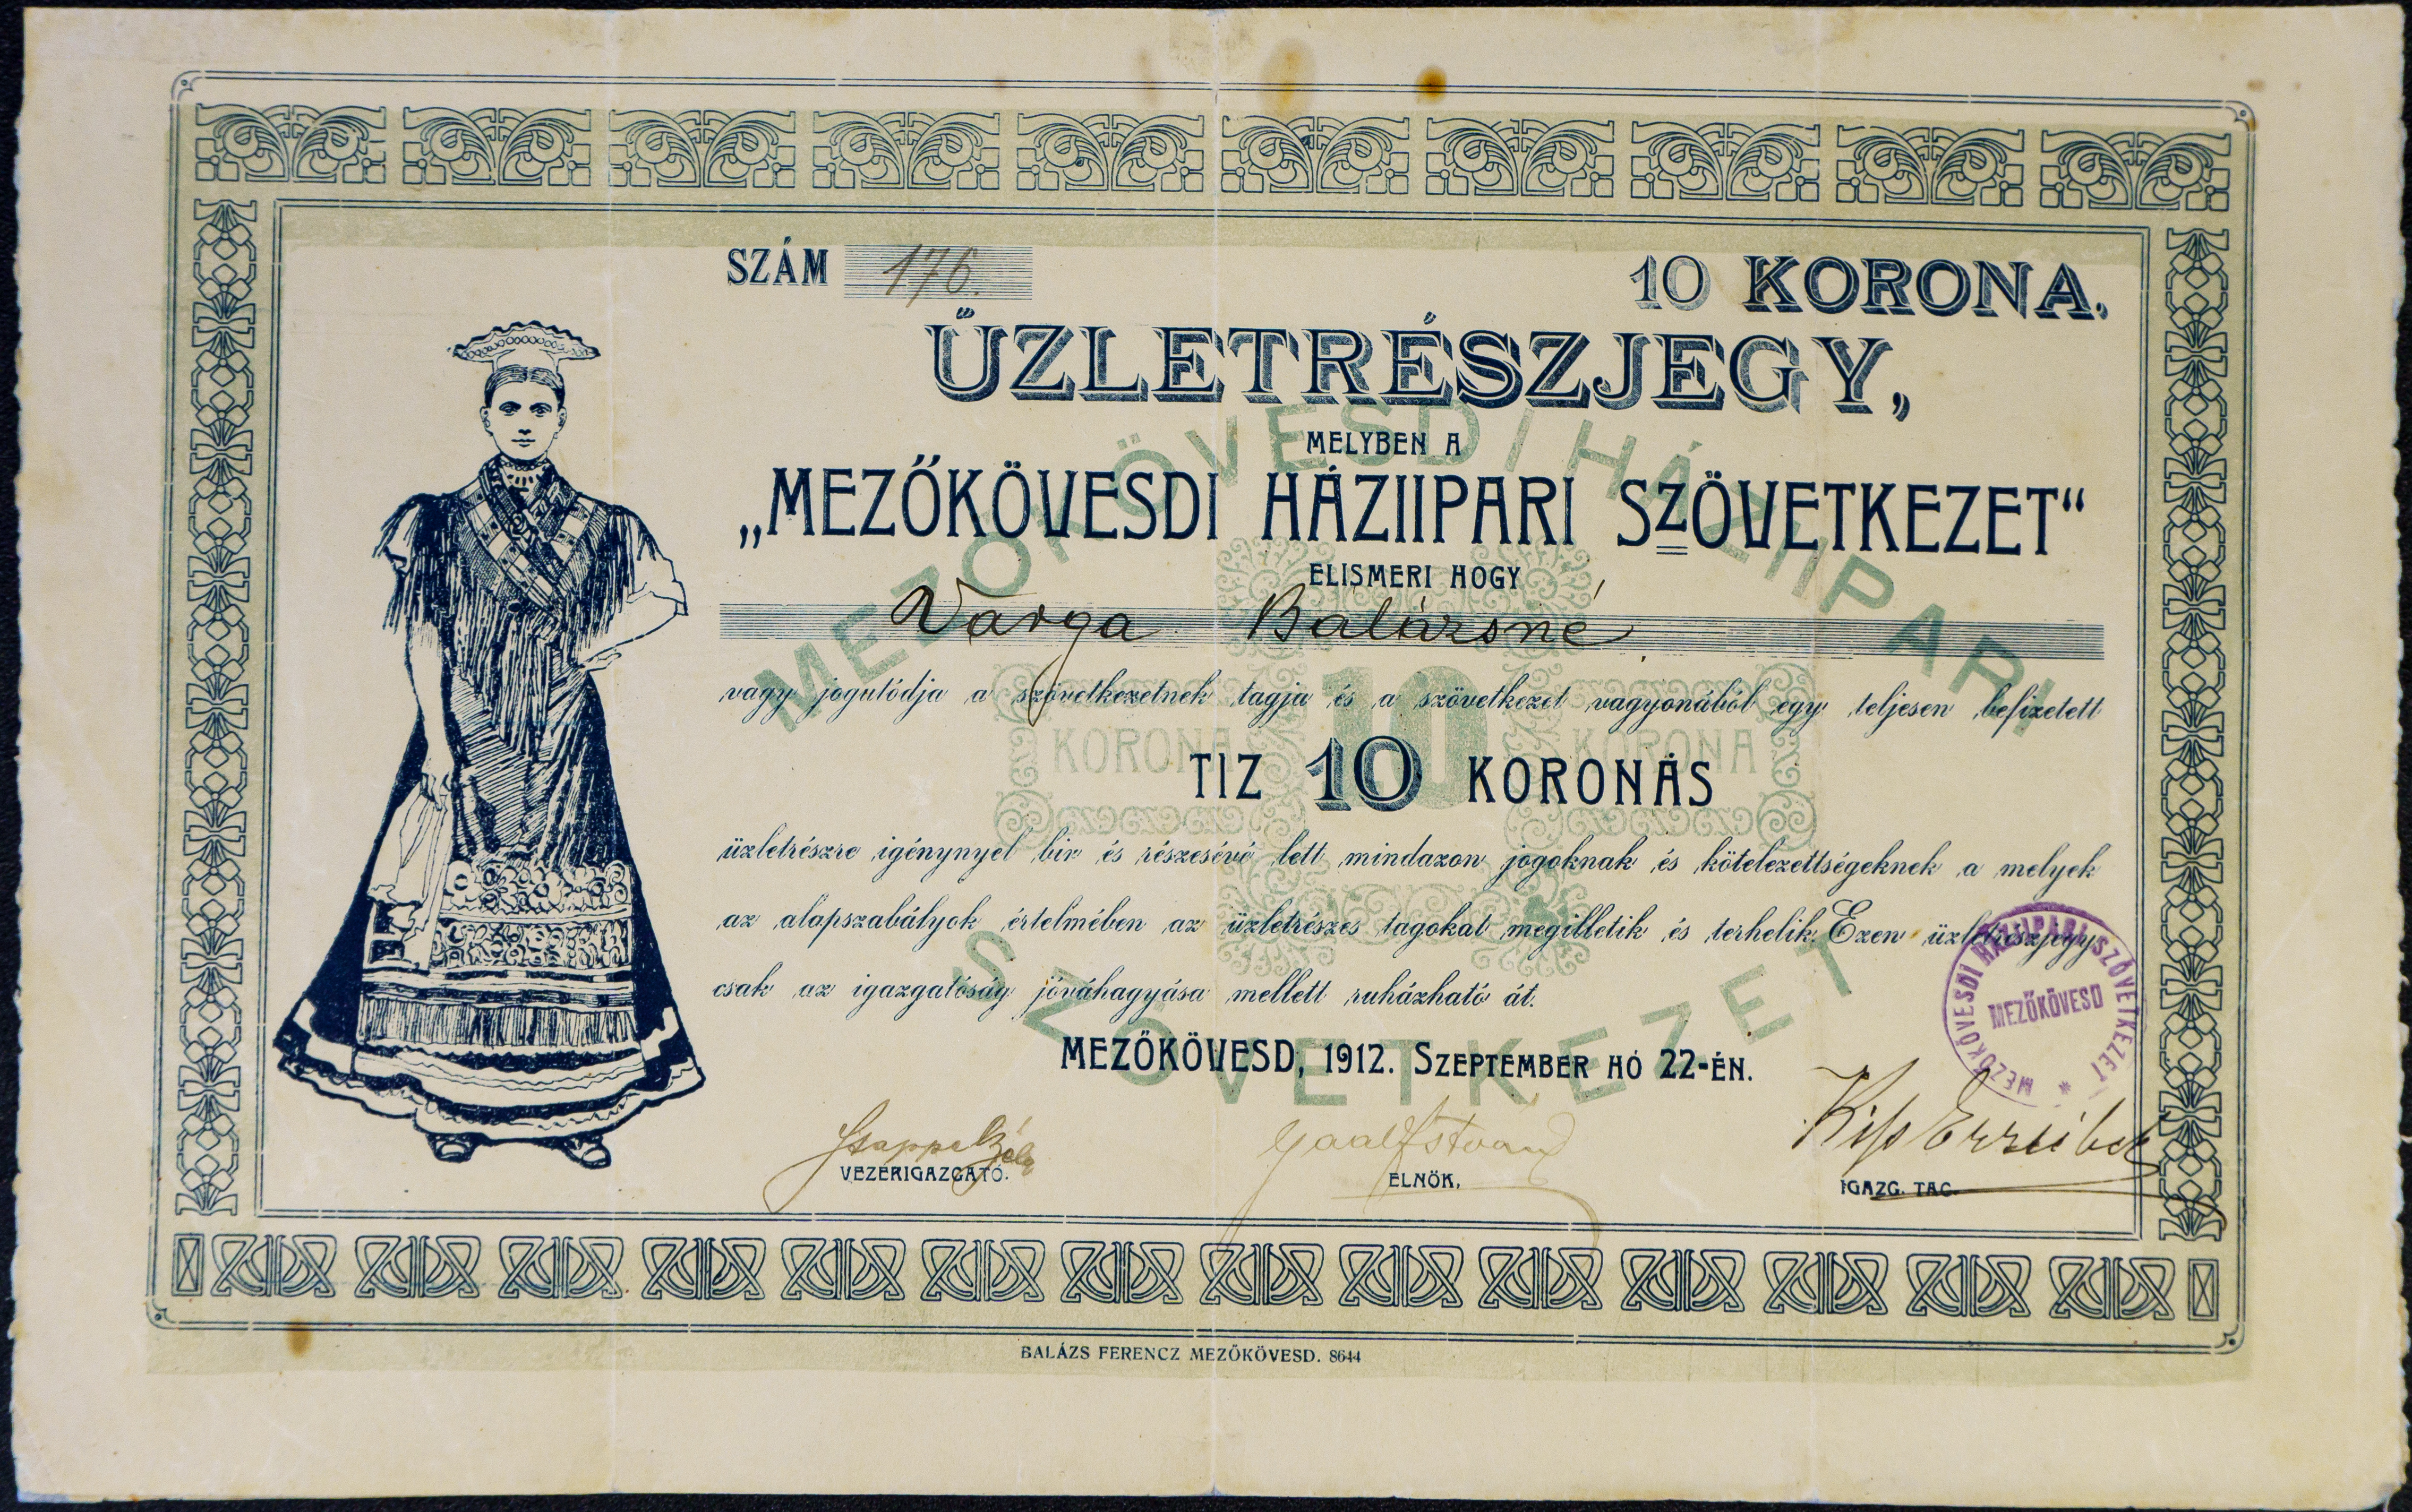 SZÁM 176.
10 KORONA.
ÜZLETRÉSZJEGY,
MELYBEN A
„MEZŐKÖVESDI HÁZIIPARI SZÖVETKEZET“
ELISMERI HOGY
Varga Balázsné
vagy jogutódja a szövetkezetnek tagja és a szövetkezet vagyonából egy teljesen befizetett
TIZ 10 KORONÁS
üzletrészre igénynyel bir és részesévé lett mindazon jogoknak és kötelezettségeknek a melyek
az alapszabályok értelmében az üzletrészes tagokat megilletik és terhelik. Ezen üzletrészjegy
csak az igazgatóság jóváhagyása mellett ruházható át.
MEZŐKÖVESD, 1912. SZEPTEMBER HÓ 22-ÉN.
MEZŐKÖVESDI HÁZIIPARI SZÖVETKEZET *
MEZŐKÖVESD
Gaal István
Kiss Erzsébet
VEZÉRIGAZGATÓ.
ELNÖK.
IGAZG. TAG.
MEZŐKÖVESDI HÁZIIPARI
SZÖVETKEZET
10
KORONA
KORONA
BALÁZS FERENCZ MEZŐKÖVESD. 8644